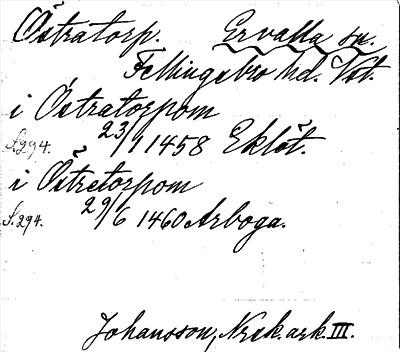 Östratorp. Ervalla sn.
Fellingsbro hd. Vst.
i Östratorpom
S. 294. 23/1 1458 Eklöt.
i Östretorpom
S. 294. 29/6 1460 Arboga.
Johansson, Nrsk. ark. III.